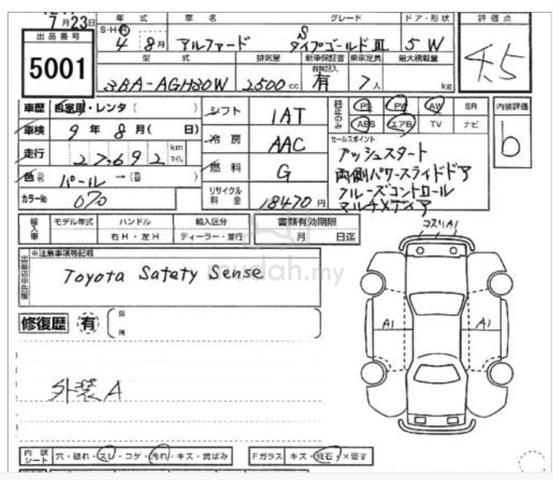 7月23日
出品番号
5001
年式 車名 グレード ドア・形状 評価点
S-H-R 4年 8月 アルファード S タイプゴールドⅢ 5 W
4.5
型式 排気量 新車保証書 乗車定員 最大積載量
3BA-AGH30W 2500cc 有 7人 kg
車歴 自家用・レンタ( )
車検 9年 8月( 日)
走行 27,692 km マイル
色 パール→( )
カラーNo 070
シフト 1AT
冷房 AAC
燃料 G
リサイクル料金 18470円
純正のみ PS PW AW SR
ABS エアB TV ナビ
内装評価
b
セールスポイント
プッシュスタート
両側パワースライドドア
クルーズコントロール
マルチメディア
輸入車 モデル年式 ハンドル 輸入区分 書類有効期限
右H・左H ディーラー・並行 月 日迄
※注意事項等記載
Toyota Satety Sense
mudah.my
修復歴 有
外装A
コスリA1
A1 A1
内装 シート 穴・破れ・スレ・コゲ・汚れ・キズ・黄ばみ Fガラス キズ・飛石・×要す